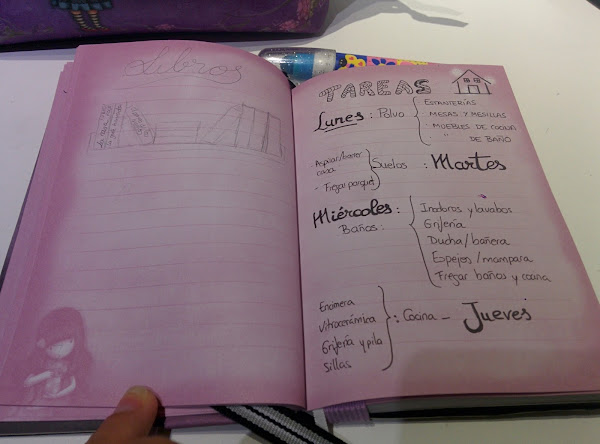 Libros
TAREAS
Lunes : Polvo
ESTANTERÍAS
MESAS Y MESILLAS
MUEBLES DE COCINA
" DE BAÑO
Aspirar/barrer
casa
- Fregar parquet
Suelos : Martes
Miércoles :
Baños :
Inodoros y lavabos
Grifería
Ducha/bañera
Espejos/mampara
Fregar baños y cocina
Encimera
Vitrocerámica
Grifería y pila
Sillas
: Cocina - Jueves